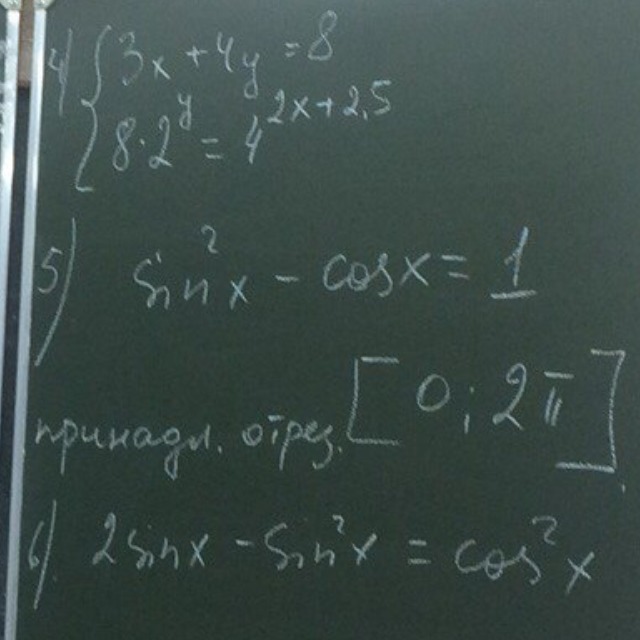 4) { 3x + 4y = 8
8·2^y = 4^{2x+2,5}
5) sin²x - cosx = 1
принадл. отрез. [0; 2π]
6) 2sinx - sin²x = cos²x